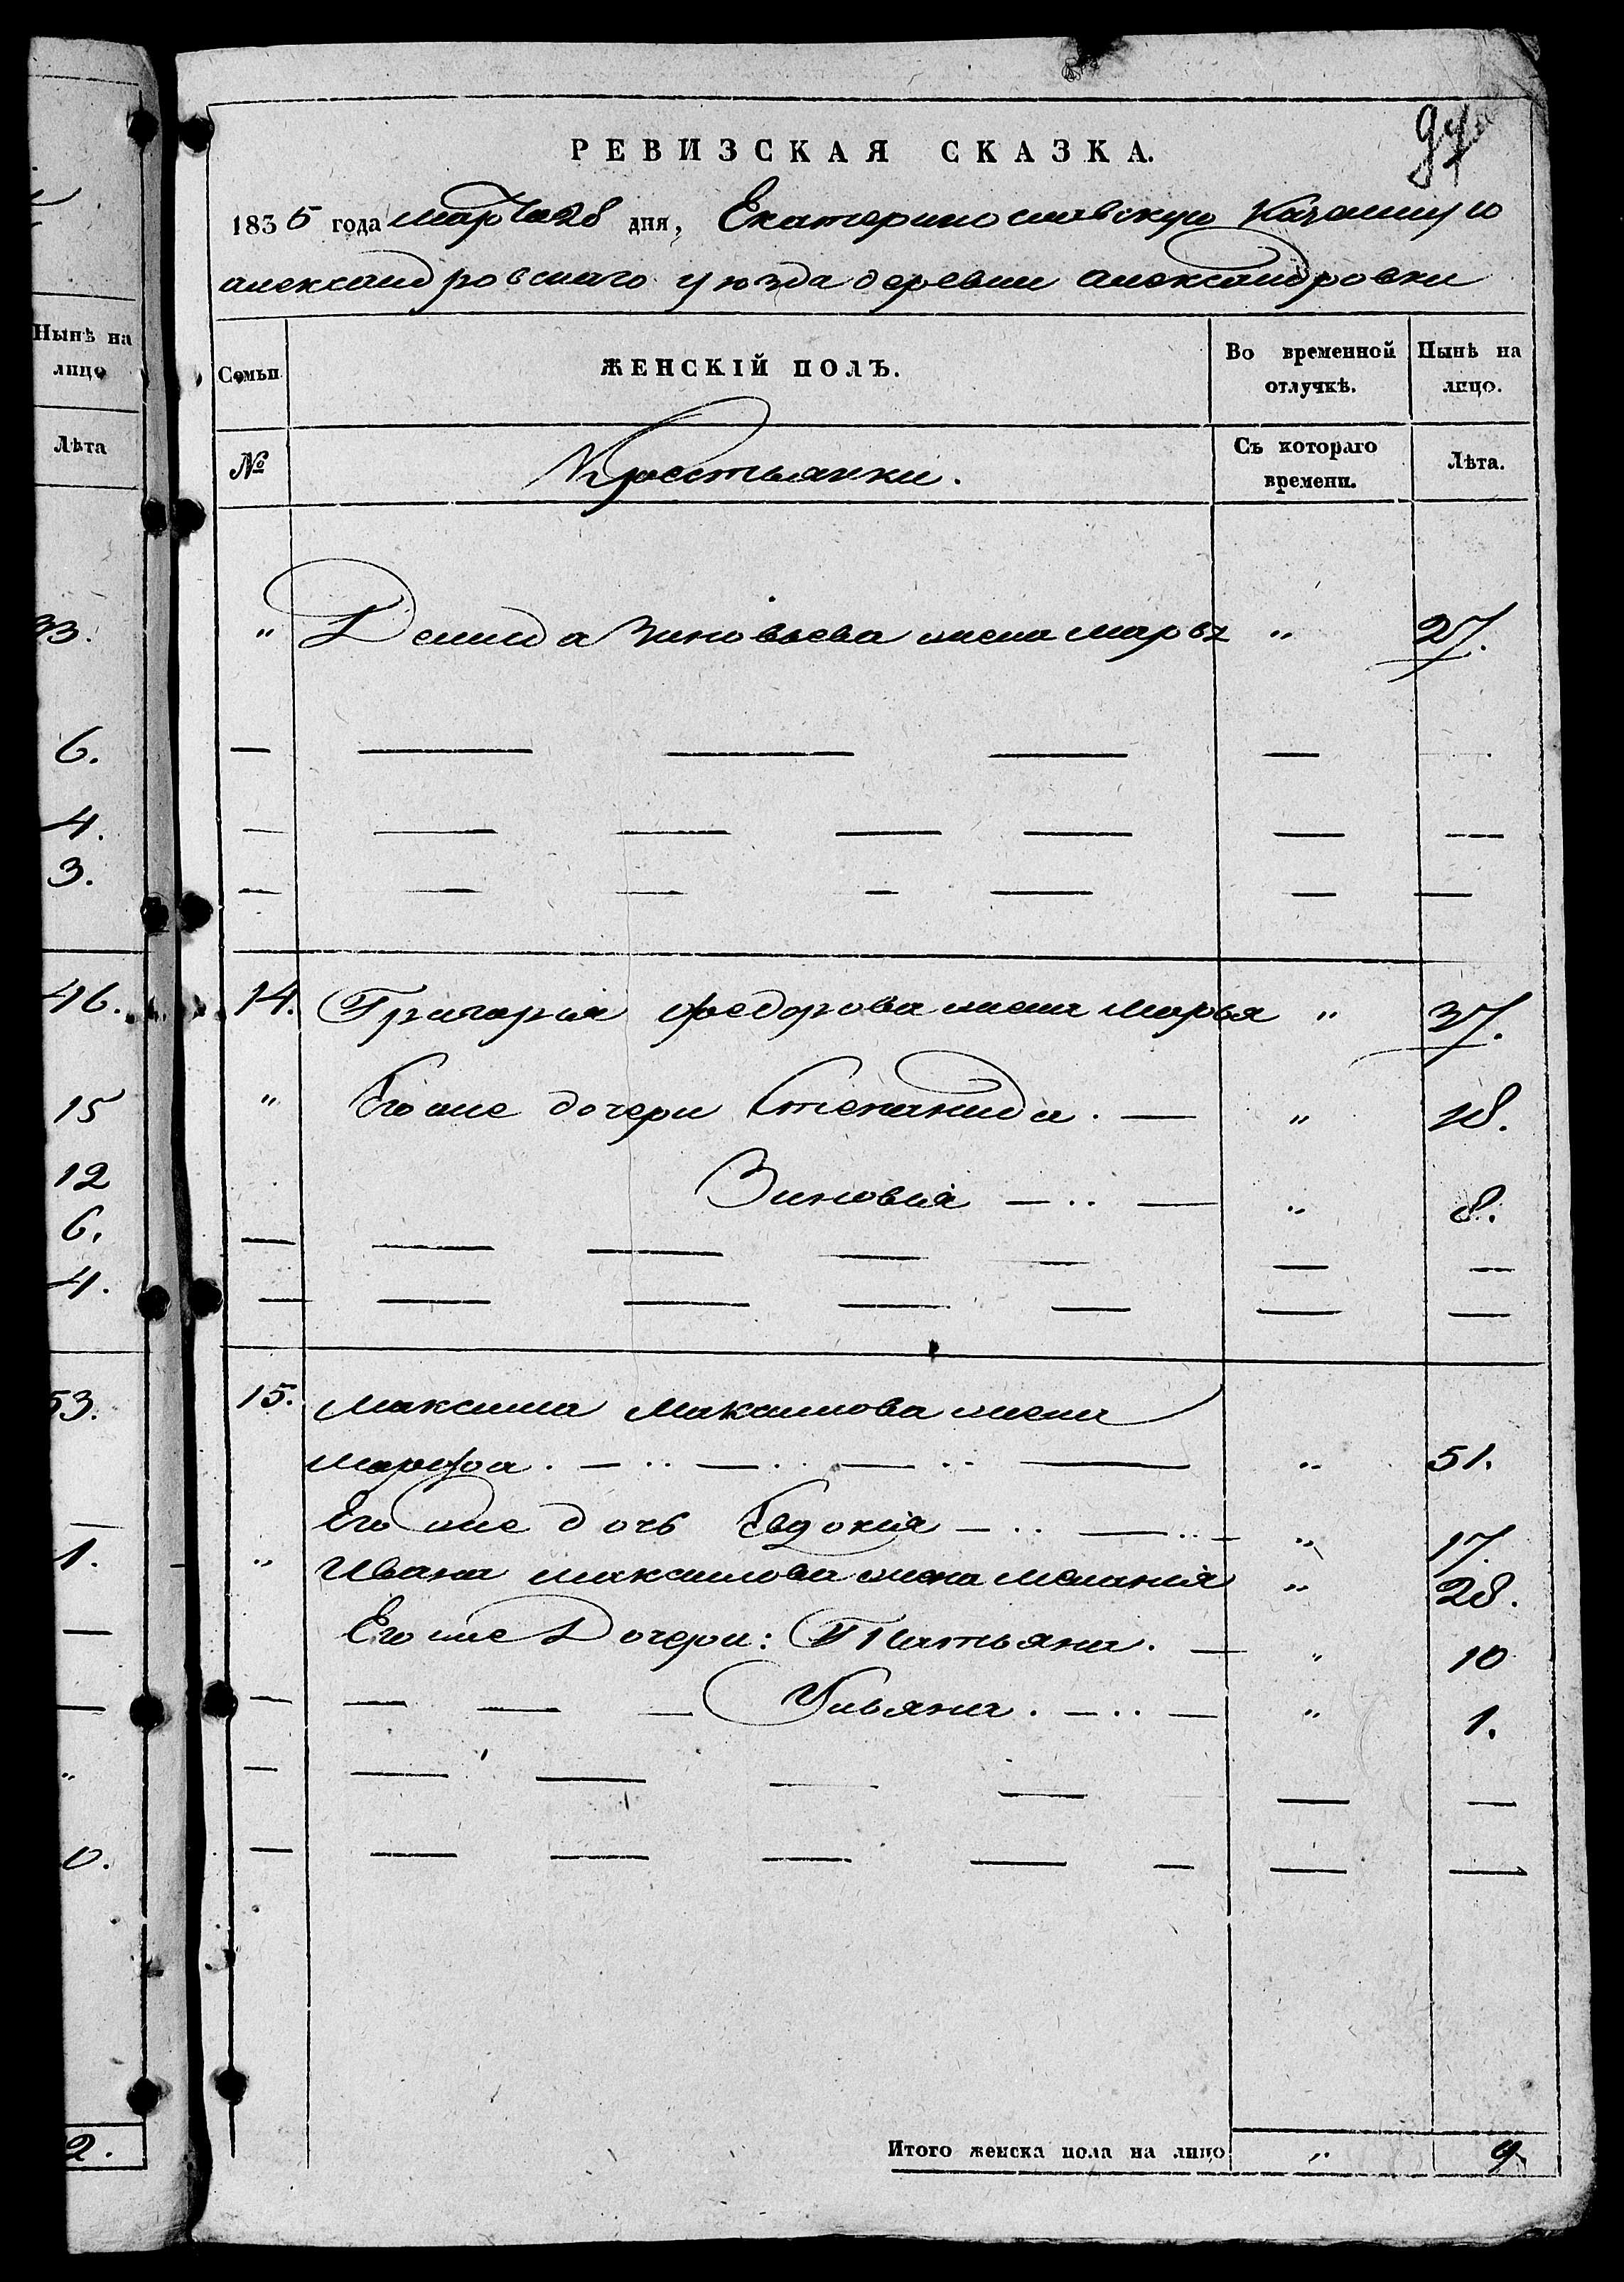 97
РЕВИЗСКАЯ СКАЗКА.
1835 года марта 28 дня, Екатеринославскую Казенную
александровскаго уезда деревни александровки
Ныне на лицо
Лѣта
33.
6.
4.
3.
46.
15
12
6.
4.
53.
1.
0.
2.
Семьи ЖЕНСКІЙ ПОЛЪ. Во временной отлучкѣ. Нынѣ на лицо.
№ Крестьянки. Съ котораго времени. Лѣта.
" Демида Зиновьева жена марья " 27.
14. Григорія федорова жена марья " 37.
" Его же дочери Степанида. — " 18.
Зиновия — .. — " 8.
15. максима максимова жена
марфа. — .. — .. — .. — " 51.
Его же дочь Евдокия — .. — .. — " 17.
" Ивана максимова жена мелания " 28.
Его же Дочери: Татьяна. — " 10
Ульяна. — .. — " 1.
Итого женска пола на лицо " 9